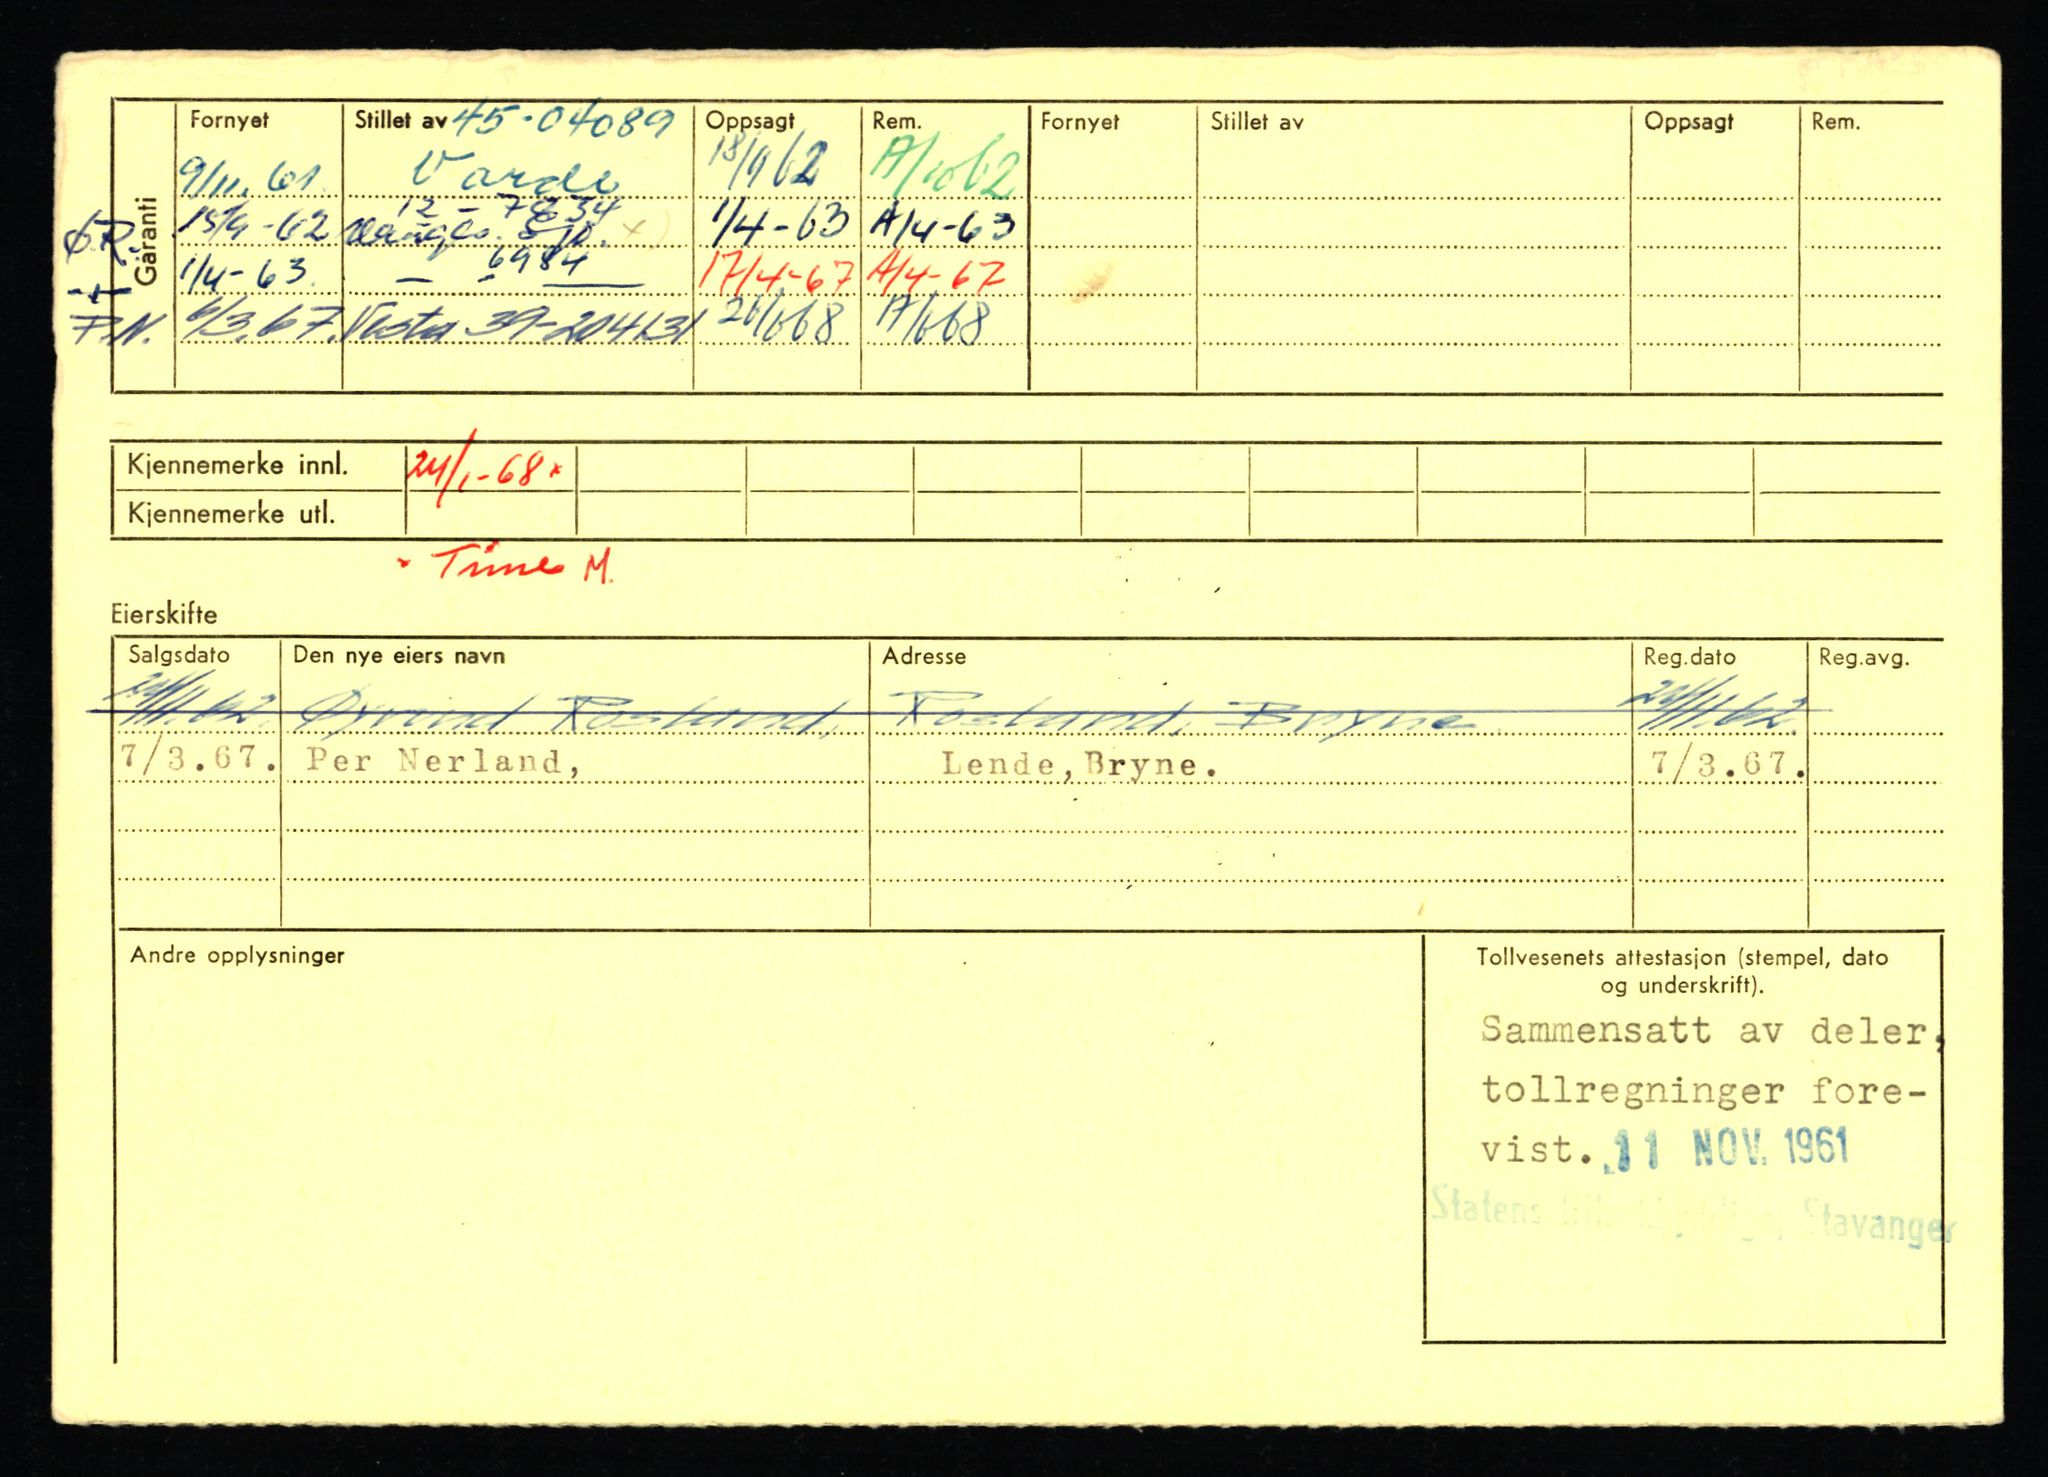 Garanti
Fornyet Stillet av 45-04089 Oppsagt Rem. Fornyet Stillet av Oppsagt Rem.
9/11.61. Varde 18/9 62 A/10 62
12 - 7834
Ø.R. 15/9-62 1/4-63 A/4-63
1/4-63. — " 6984 17/4-67 A/4-67
P.N. 6/3.67. Vesta 39-204131 A/668
Kjennemerke innl. 24/1-68 x
Kjennemerke utl.
x Time M.
Eierskifte
Salgsdato Den nye eiers navn Adresse Reg.dato Reg.avg.
24/11.62. Øyvind Rosland, Rosland, Bryne. 24/11.62.
7/3.67. Per Nerland, Lende,Bryne. 7/3.67.
Andre opplysninger
Tollvesenets attestasjon (stempel, dato
og underskrift).
Sammensatt av deler,
tollregninger fore-
vist. 11 NOV. 1961
Statens Stavanger